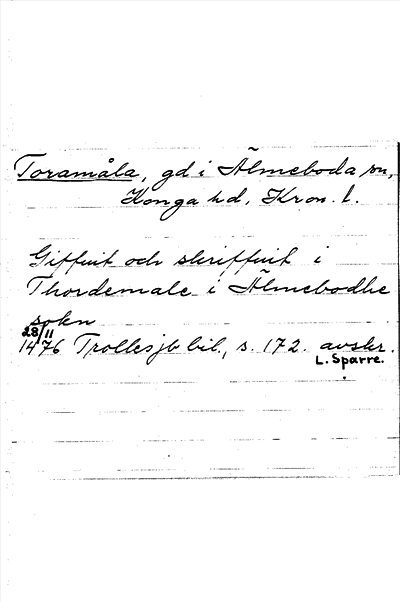 Toramåla, gd i Älmeboda sn,
Konga hd, Kron. l.
Giffuit och skriffuit i
Thordemale i Älmebodhe
sokn
28/11
1476 Trollesjb bil., s. 172. avskr.
L. Sparre.